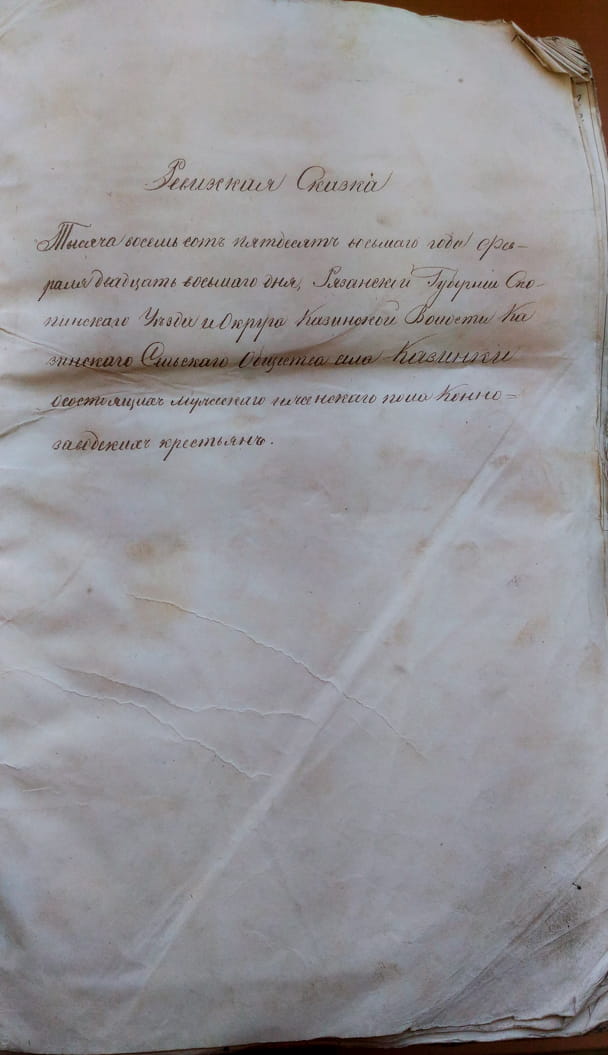 Ревижская Сказка
Тысяча восемь сотъ пятдесятъ осьмаго года Фев-
раля двадцать восьмаго дня, Рязанскій Губерніи Ско-
пинскаго Уѣзда и Округа Казинской Волости Ка
зинскаго Сельскаго Общества села Казинки
о состоящихъ мужескаго и женскаго пола Конно=
заводскихъ крестьянъ.